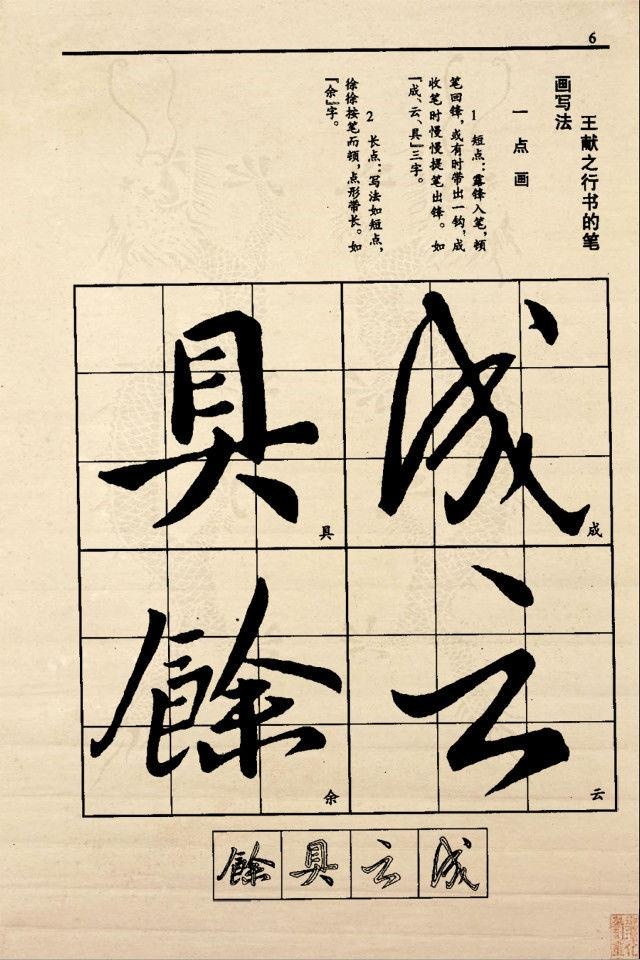 6
王献之行书的笔
画写法
一 点 画
1 短点：露锋入笔，顿
笔回锋，或有时带出一钩，成
收笔时慢慢提笔出锋。如
『成、云、具』三字。
2 长点：写法如短点，
徐徐按笔而顿，点形带长。如
『余』字。
成
成
云
云
具
具
餘
余
餘 具 云 成